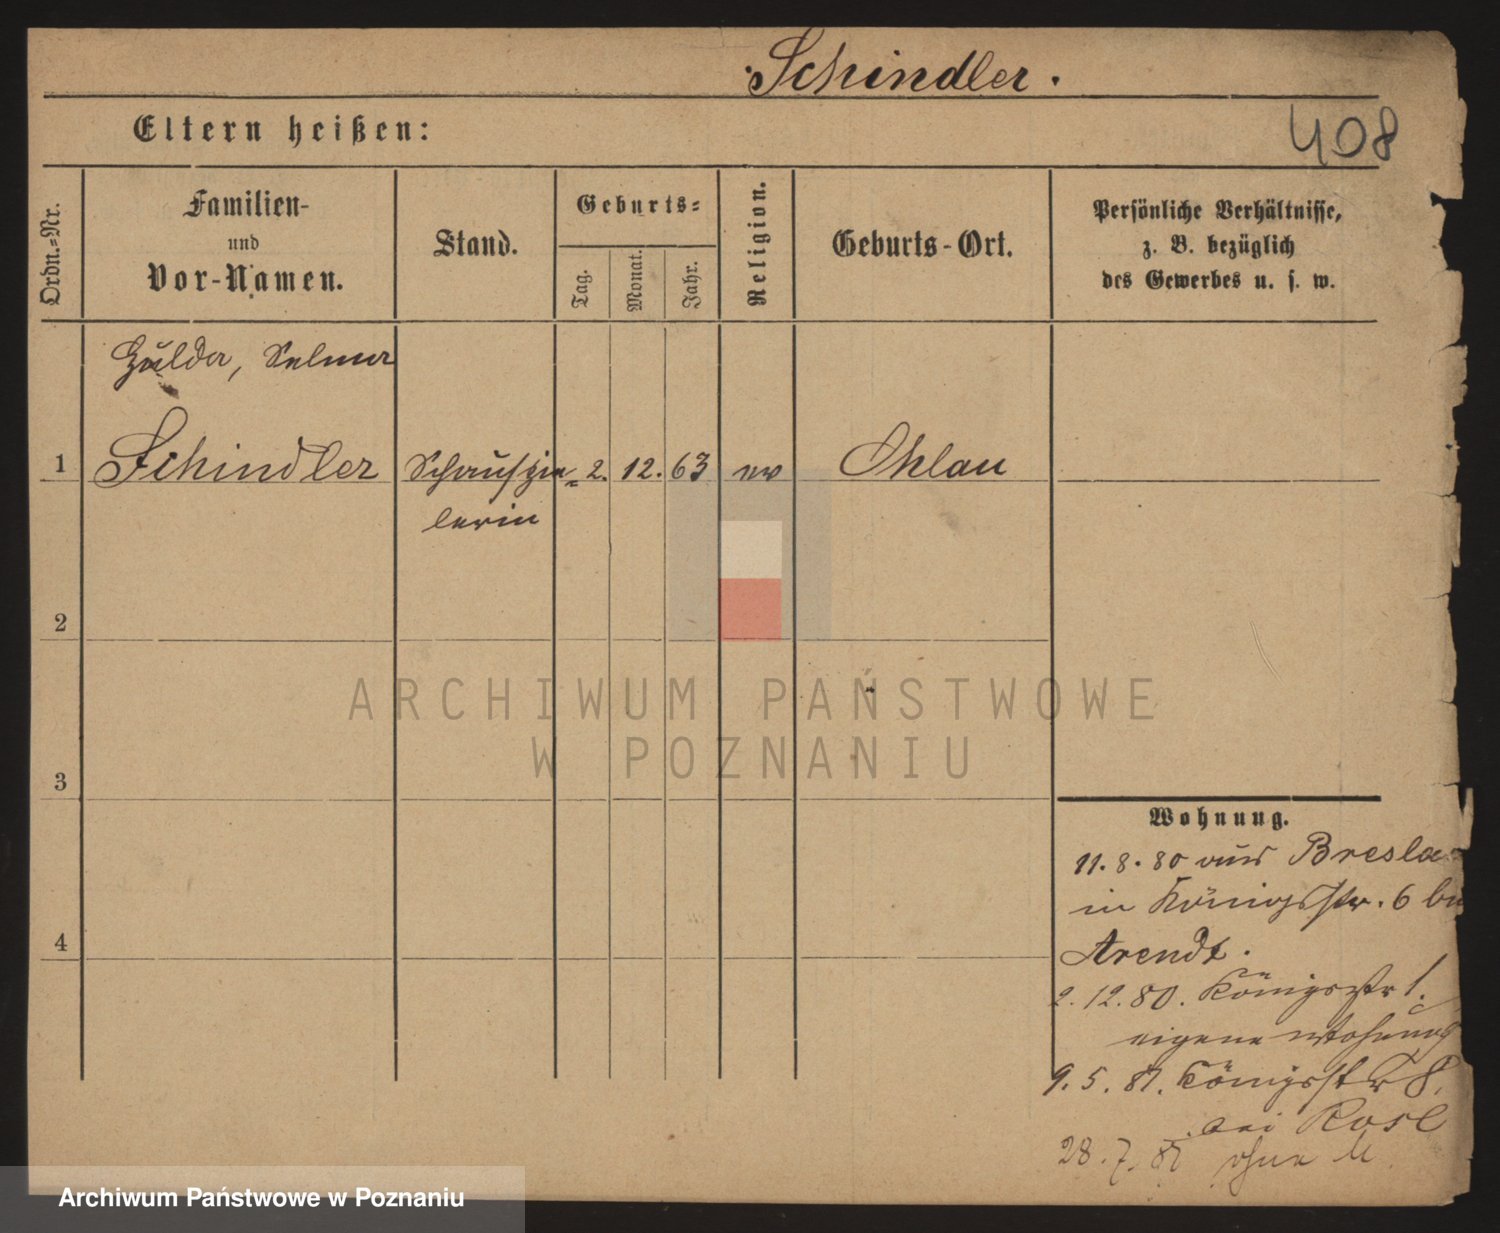 Schindler.
408
Eltern heißen:
Ordn.=Nr.
Familien-
und
Vor-Namen.
Stand.
Geburts=
Tag.
Monat.
Jahr.
Religion.
Geburts-Ort.
Persönliche Verhältnisse,
z. B. bezüglich
des Gewerbes u. s. w.
Hulda, Selma
1 Schindler Schauspie= 2. 12. 63 ev Ohlau
lerin
2
3
4
Wohnung.
11. 8. 80 aus Bresla
in Königsstr. 6 bei
Arendt.
2. 12. 80. Königsstr 1.
eigene Wohnung
9. 5. 81. Königsstr 8,
bei Rosl
28. 7. 81 ohne
ARCHIWUM PAŃSTWOWE
W POZNANIU
Archiwum Państwowe w Poznaniu